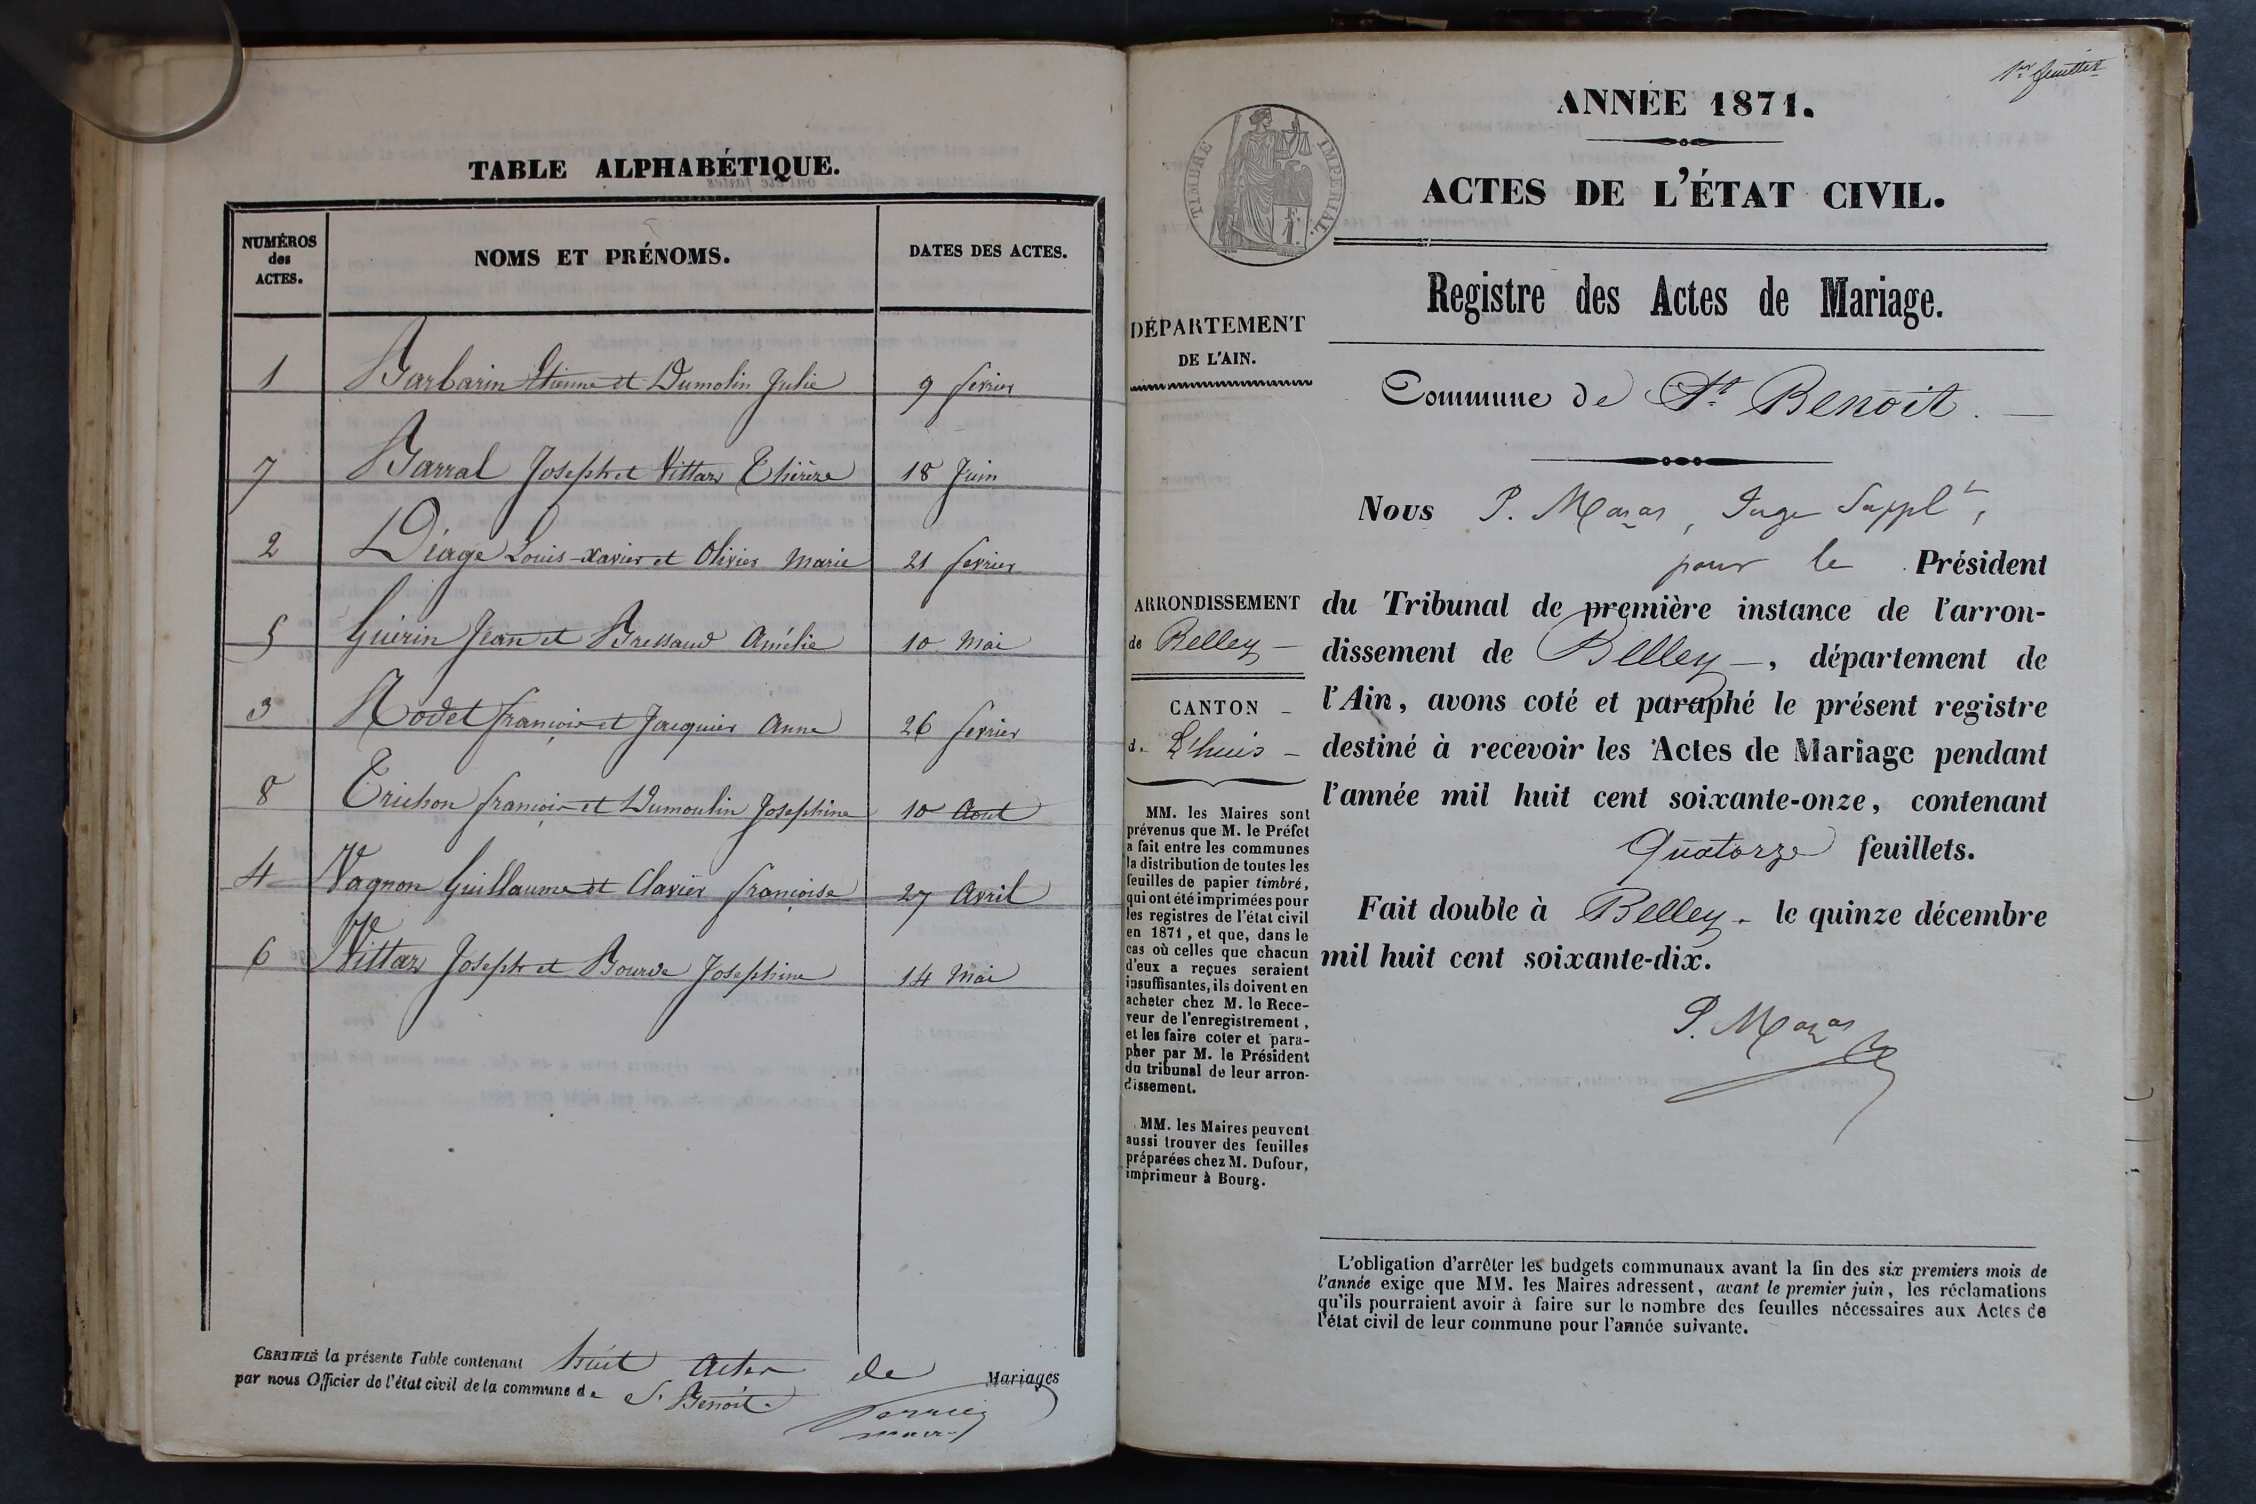 TABLE ALPHABÉTIQUE.
NUMÉROS des ACTES. NOMS ET PRÉNOMS. DATES DES ACTES.
1 Barbarin Etienne et Dumolin Julie 9 fevrier
7 Barral Joseph et Vittaz Thérèze 18 Juin
2 Déage Louis-Xavier et Olivier Marie 21 fevrier
5 Guérin Jean et Bressand Amélie 10 Mai
3 Rodet françois et Jacquier Anne 26 fevrier
8 Trichon françois et Dumoulin Josephine 10 Aout
4 Vagnon Guillaume et Clavier françoise 27 Avril
6 Vittaz Joseph et Bourde Josephine 14 Mai
CERTIFIÉ la présente Table contenant huit actes de Mariages
par nous Officier de l'état civil de la commune de St Benoit.
maire
1er feuillet
ANNÉE 1871.
TIMBRE IMPÉRIAL.
ACTES DE L'ÉTAT CIVIL.
Registre des Actes de Mariage.
DÉPARTEMENT
DE L'AIN.
Commune de St. Benoit.
Nous P. Mazas, Juge Supplt,
pour le Président
ARRONDISSEMENT
de Belley
CANTON
de Lhuis
du Tribunal de première instance de l'arron-
dissement de Belley, département de
l'Ain, avons coté et paraphé le présent registre
destiné à recevoir les Actes de Mariage pendant
l'année mil huit cent soixante-onze, contenant
Quatorze feuillets.
Fait double à Belley. le quinze décembre
mil huit cent soixante-dix.
P. Mazas
MM. les Maires sont
prévenus que M. le Préfet
a fait entre les communes
la distribution de toutes les
feuilles de papier timbré,
qui ont été imprimées pour
les registres de l'état civil
en 1871, et que, dans le
cas où celles que chacun
d'eux a reçues seraient
insuffisantes, ils doivent en
acheter chez M. le Rece-
veur de l'enregistrement,
et les faire coter et para-
pher par M. le Président
du tribunal de leur arron-
dissement.
MM. les Maires peuvent
aussi trouver des feuilles
préparées chez M. Dufour,
imprimeur à Bourg.
L'obligation d'arrêter les budgets communaux avant la fin des six premiers mois de
l'année exige que MM. les Maires adressent, avant le premier juin, les réclamations
qu'ils pourraient avoir à faire sur le nombre des feuilles nécessaires aux Actes de
l'état civil de leur commune pour l'année suivante.